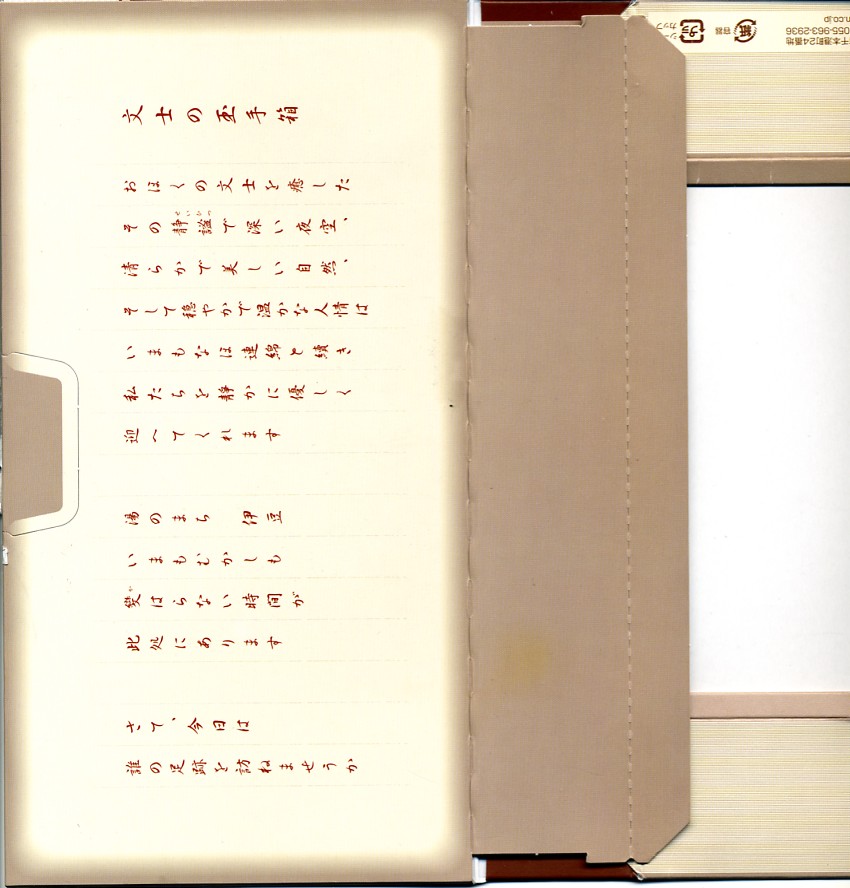 文士の玉手箱
おほくの文士を癒した
その静謐で深い夜空、
せいひつ
清らかで美しい自然、
そして穏やかで温かな人情は
いまもなほ連綿と続き
私たちを静かに優しく
迎へてくれます
湯のまち 伊豆
いまもむかしも
變はらない時間が
か
此処にあります
さて、今日は
誰の足跡を訪ねませうか
千本港町24番地
055-963-2936
n.co.jp
紙
容器
プラ
カップ